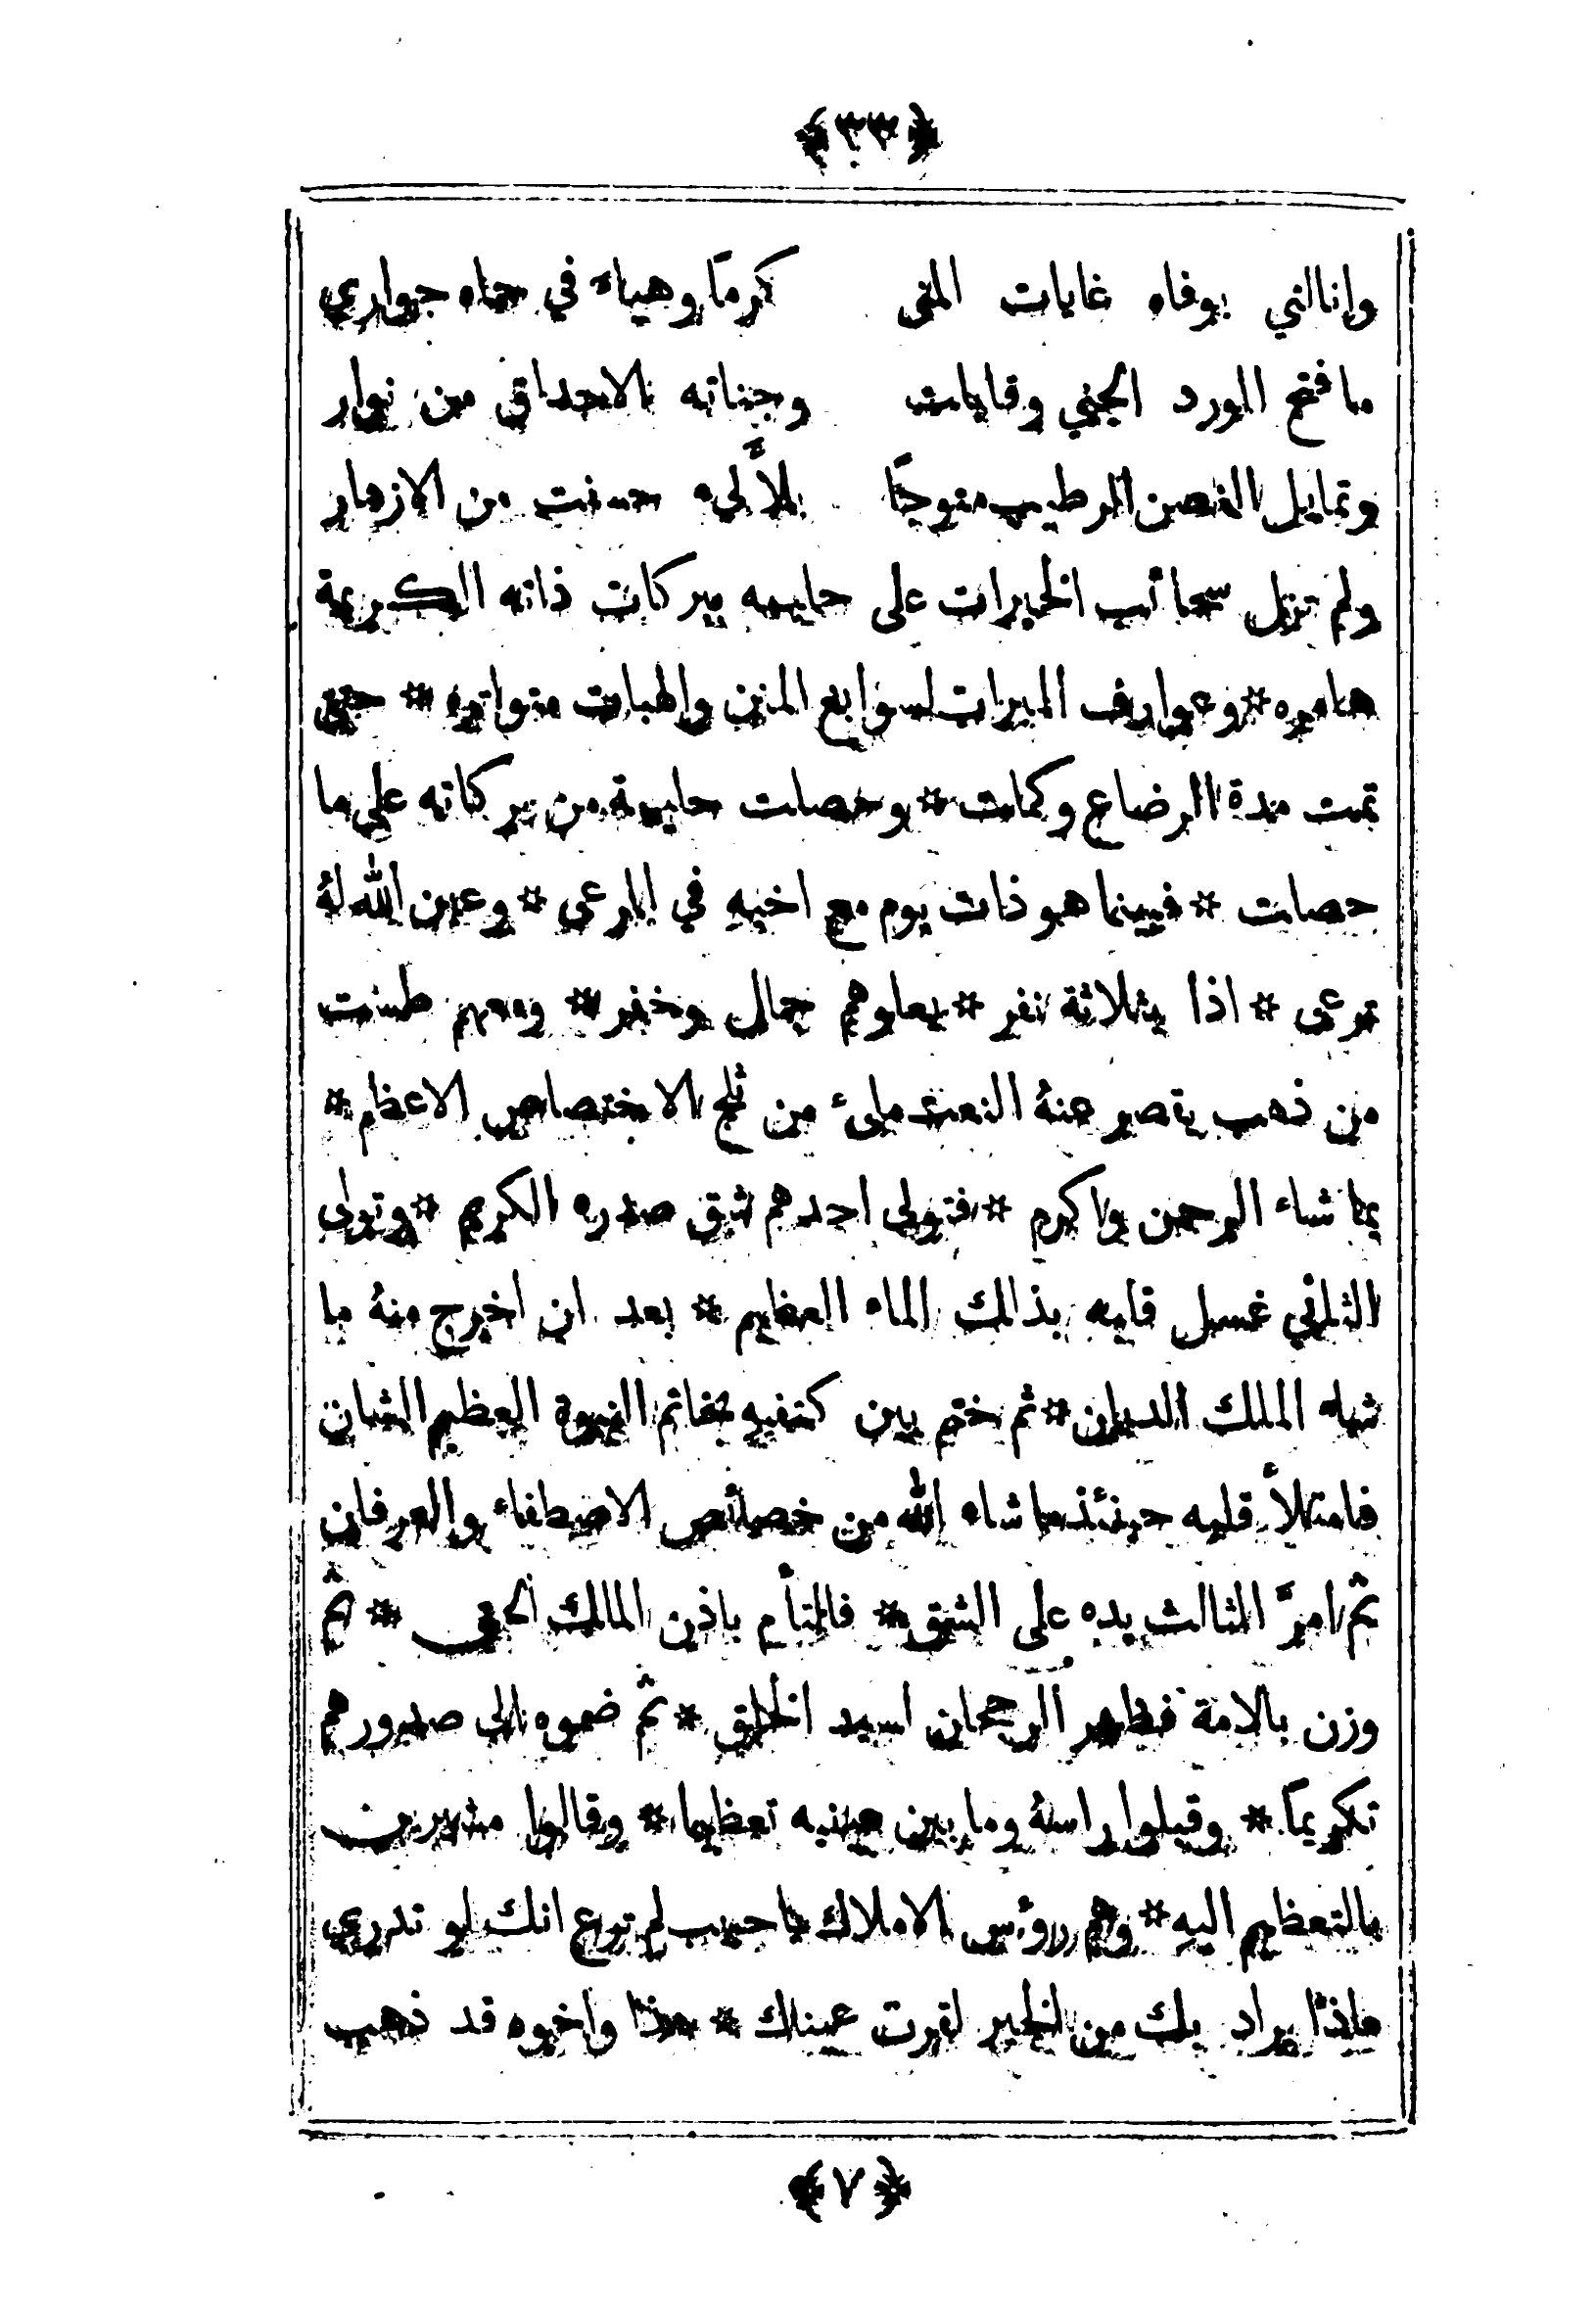 ﴿٣٣﴾
وانالني بوفاه غايات المنى كرمًا وهياه في حماه جواري
ما فتح الورد الجني وقابلت وجناته الاحداق من نوار
وتمايل الغصن الرطيب متوجًا بلآليء حسنت من الازهار
ولم تزل سحائب الخيرات على حليمه ببركات ذاته الكريمة
هامره * وعوارف المبرات لسوابغ المنن والهبات متواتره * حتى
تمت مدة الرضاع وكملت * وحصلت حليمة من بركاته على ما
حصلت * فبينما هو ذات يوم مع اخيه في المرعى * وعين الله لهُ
ترعى * اذا بثلاثة نفر * يعلوهم جمال وخفر * ومعهم طست
من ذهب يقصر عنهُ النعت ملئ من ثلج الاختصاص الاعظم *
بما شاء الرحمن واكرم * فتولى احدهم شق صدره الكريم * وتولى
الثاني غسل قلبه بذلك الماء العظيم * بعد ان اخرج منهُ ما
شاء الملك الديان * ثم ختم بين كتفيه بخاتم النبوة العظيم الشان
فامتلأ قلبه حينئذ ما شاء الله من خصائص الاصطفاء والعرفان
ثم امرَّ الثالث يده على الشق * فالتأم باذن المالك الحق * ثم
وزن بالامة فظهر الرجحان لسيد الخلق * ثم ضموه الى صدورهم
تكريمًا * وقبلوا راسهُ وما بين عينيه تعظيما * وقالوا مشيرين
بالتعظيم اليه * وهم رؤس الاملاك يا حبيب لم ترع انك لو تدري
ماذا يراد بك من الخير لقرت عيناك * هذا واخوه قد ذهب
﴿٧﴾